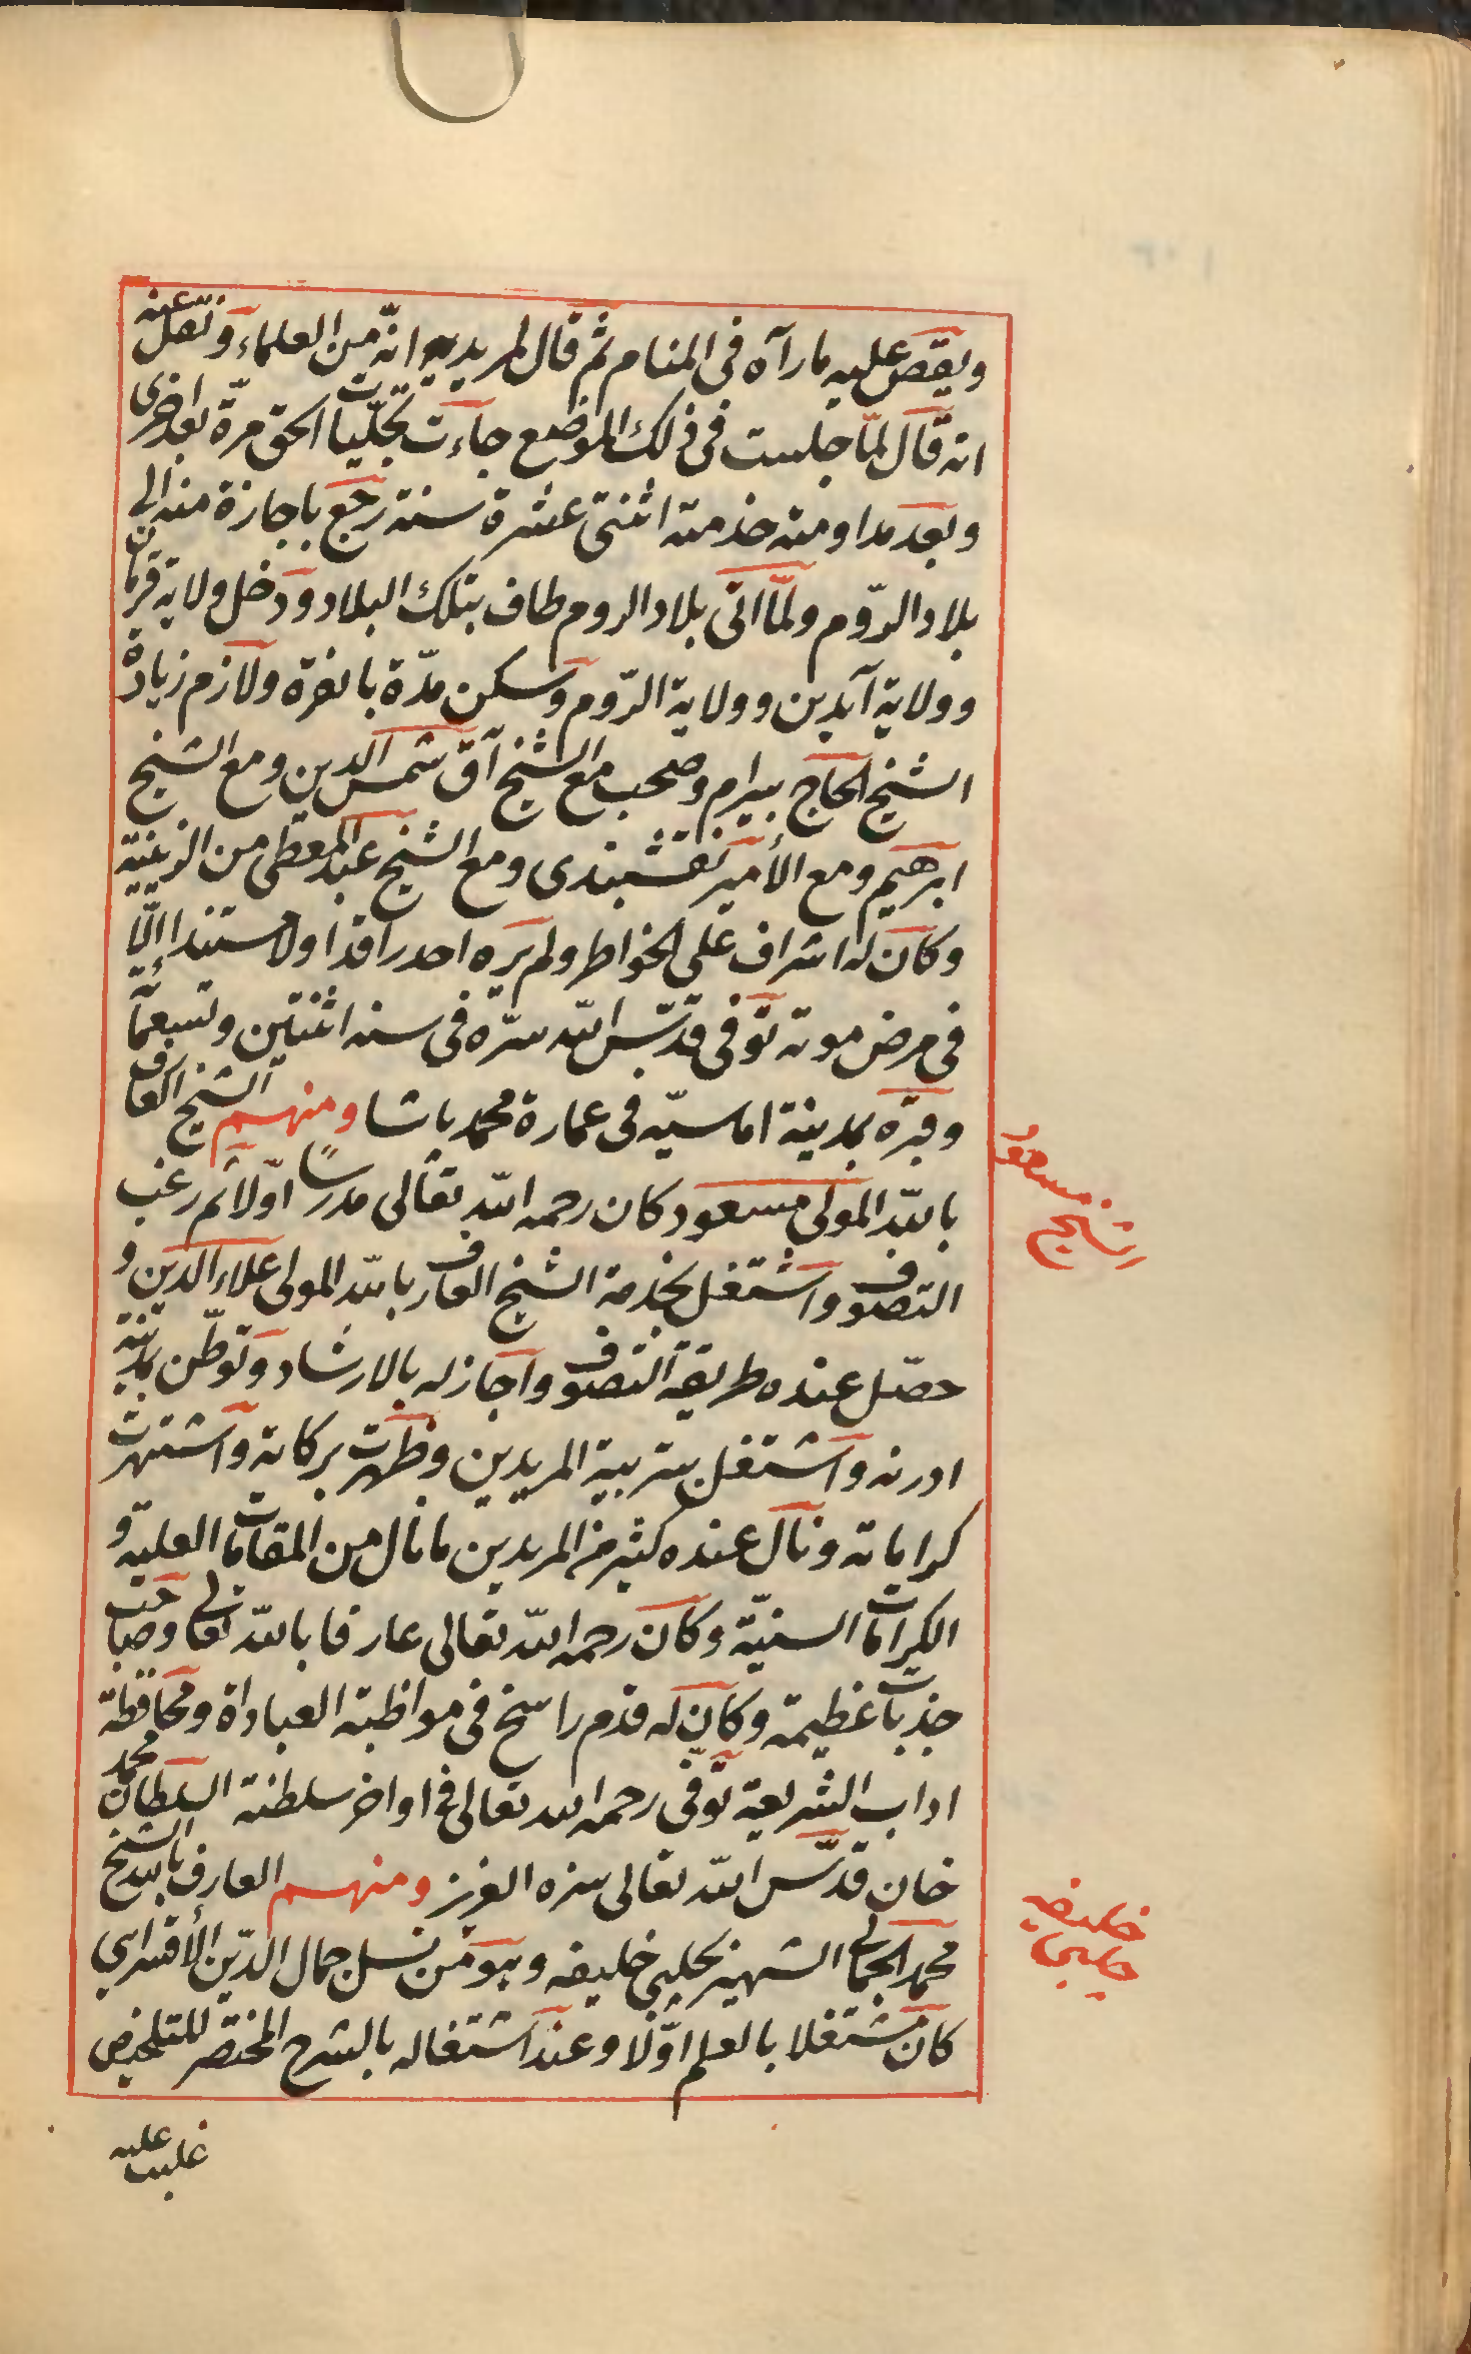 ويقص عليه ما رآه فى المنام ثم قال لمريديه انّه من العلماء ونقل عنه
انه قال لمّا جلست فى ذلك الموضع جاءت تجلّيات الحق مرّة بعد اخرى
وبعد مداومته خدمته اثنتى عشرة سنة رجع باجازة منه الى
بلاد الرّوم ولمّا اتى بلاد الروم طاف بتلك البلاد ودخل ولاية قرمان
وولاية آيدين وولاية الرّوم وسكن مدّة بانقرة ولازم زيادة
الشيخ الحاج بيرام وصحب مع الشيخ آق شمس الدين ومع الشيخ
ابرهيم ومع الأمير نقشبندى ومع الشيخ عبد المعطى من الزينية
وكان له اشراف على الخواطر ولم يره احد راقدا ولا مستندا الّا
فى مرض موته توفى قدّس الله سرّه فى سنه اثنتين وتسعمائة
وقبره بمدينة اماسيّه فى عمارة محمد باشا ومنهم الشيخ العارف
بالله المولى مسعود كان رحمه الله تعالى مدرسًا اوّلا ثم رغب
التصوف واشتغل بخدمة الشيخ العارف بالله المولى علاء الدين و
حصّل عنده طريقة التصوف واجاز له بالارشاد وتوطّن بمدينة
ادرنه واشتغل بتربية المريدين وظهرت بركاته واشتهرت
كراماته ونال عنده كثير من المريدين ما نال من المقامات العليه و
الكرامات السنيّة وكان رحمه الله تعالى عارفا بالله تعالى وصاحب
جذبات عظيمة وكان له قدم راسخ فى مواظبة العباداة ومحافظة
اداب الشريعة توفى رحمه الله تعالى فى اواخر سلطنة السلطان محمد
خان قدّس الله تعالى سره العزيز ومنهم العارف بالله الشيخ
محمد الجمالى الشهير بچلبى خليفه وهو من نسل جمال الدّين الأقسرايى
كان مشتغلا بالعلم اوّلا وعند اشتغاله بالشرح المختصر للتلخيص
غلب عليه
الشيخ مسعود
چلبى خليفه